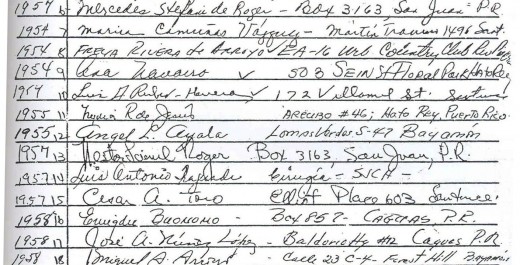 1957 6 Mercedes Stefani de Roger - Box 3163 San Juan P.R.
1954 7 Maria Camuñas Vázquez - Martín Travieso 1496 Sant.
1954 8 FREYA RIVERA de ARROYO EA-16 Urb Country Club Rio
1954 9 Ana Navarro 503 SEIN St Floral Park Hato Rey
1954 10 Luis A. Rubio - 172 Villamil St. Santurce
1955 11 de Jesús ARECIBO #46; Hato Rey, PUERTO RICO
1955 12 Angel L. Ayala Lomas Verdes S-47 Bayamón
1957 13 Nestor Roger Box 3163, San Juan, P.R.
1957 14 Luis Antonio Cirugía - SJCH -
1957 15 Cesar A. Toro Elliot Place 603 Santurce
1958 16 Enrique BUONOMO - Box 857 - CAGUAS P.R.
1958 17 José A. Núñez López - Baldorioty Caguas P.R.
1958 18 Miguel A. Arroyo - Calle 23 C-4 Forest Hill Bayamón